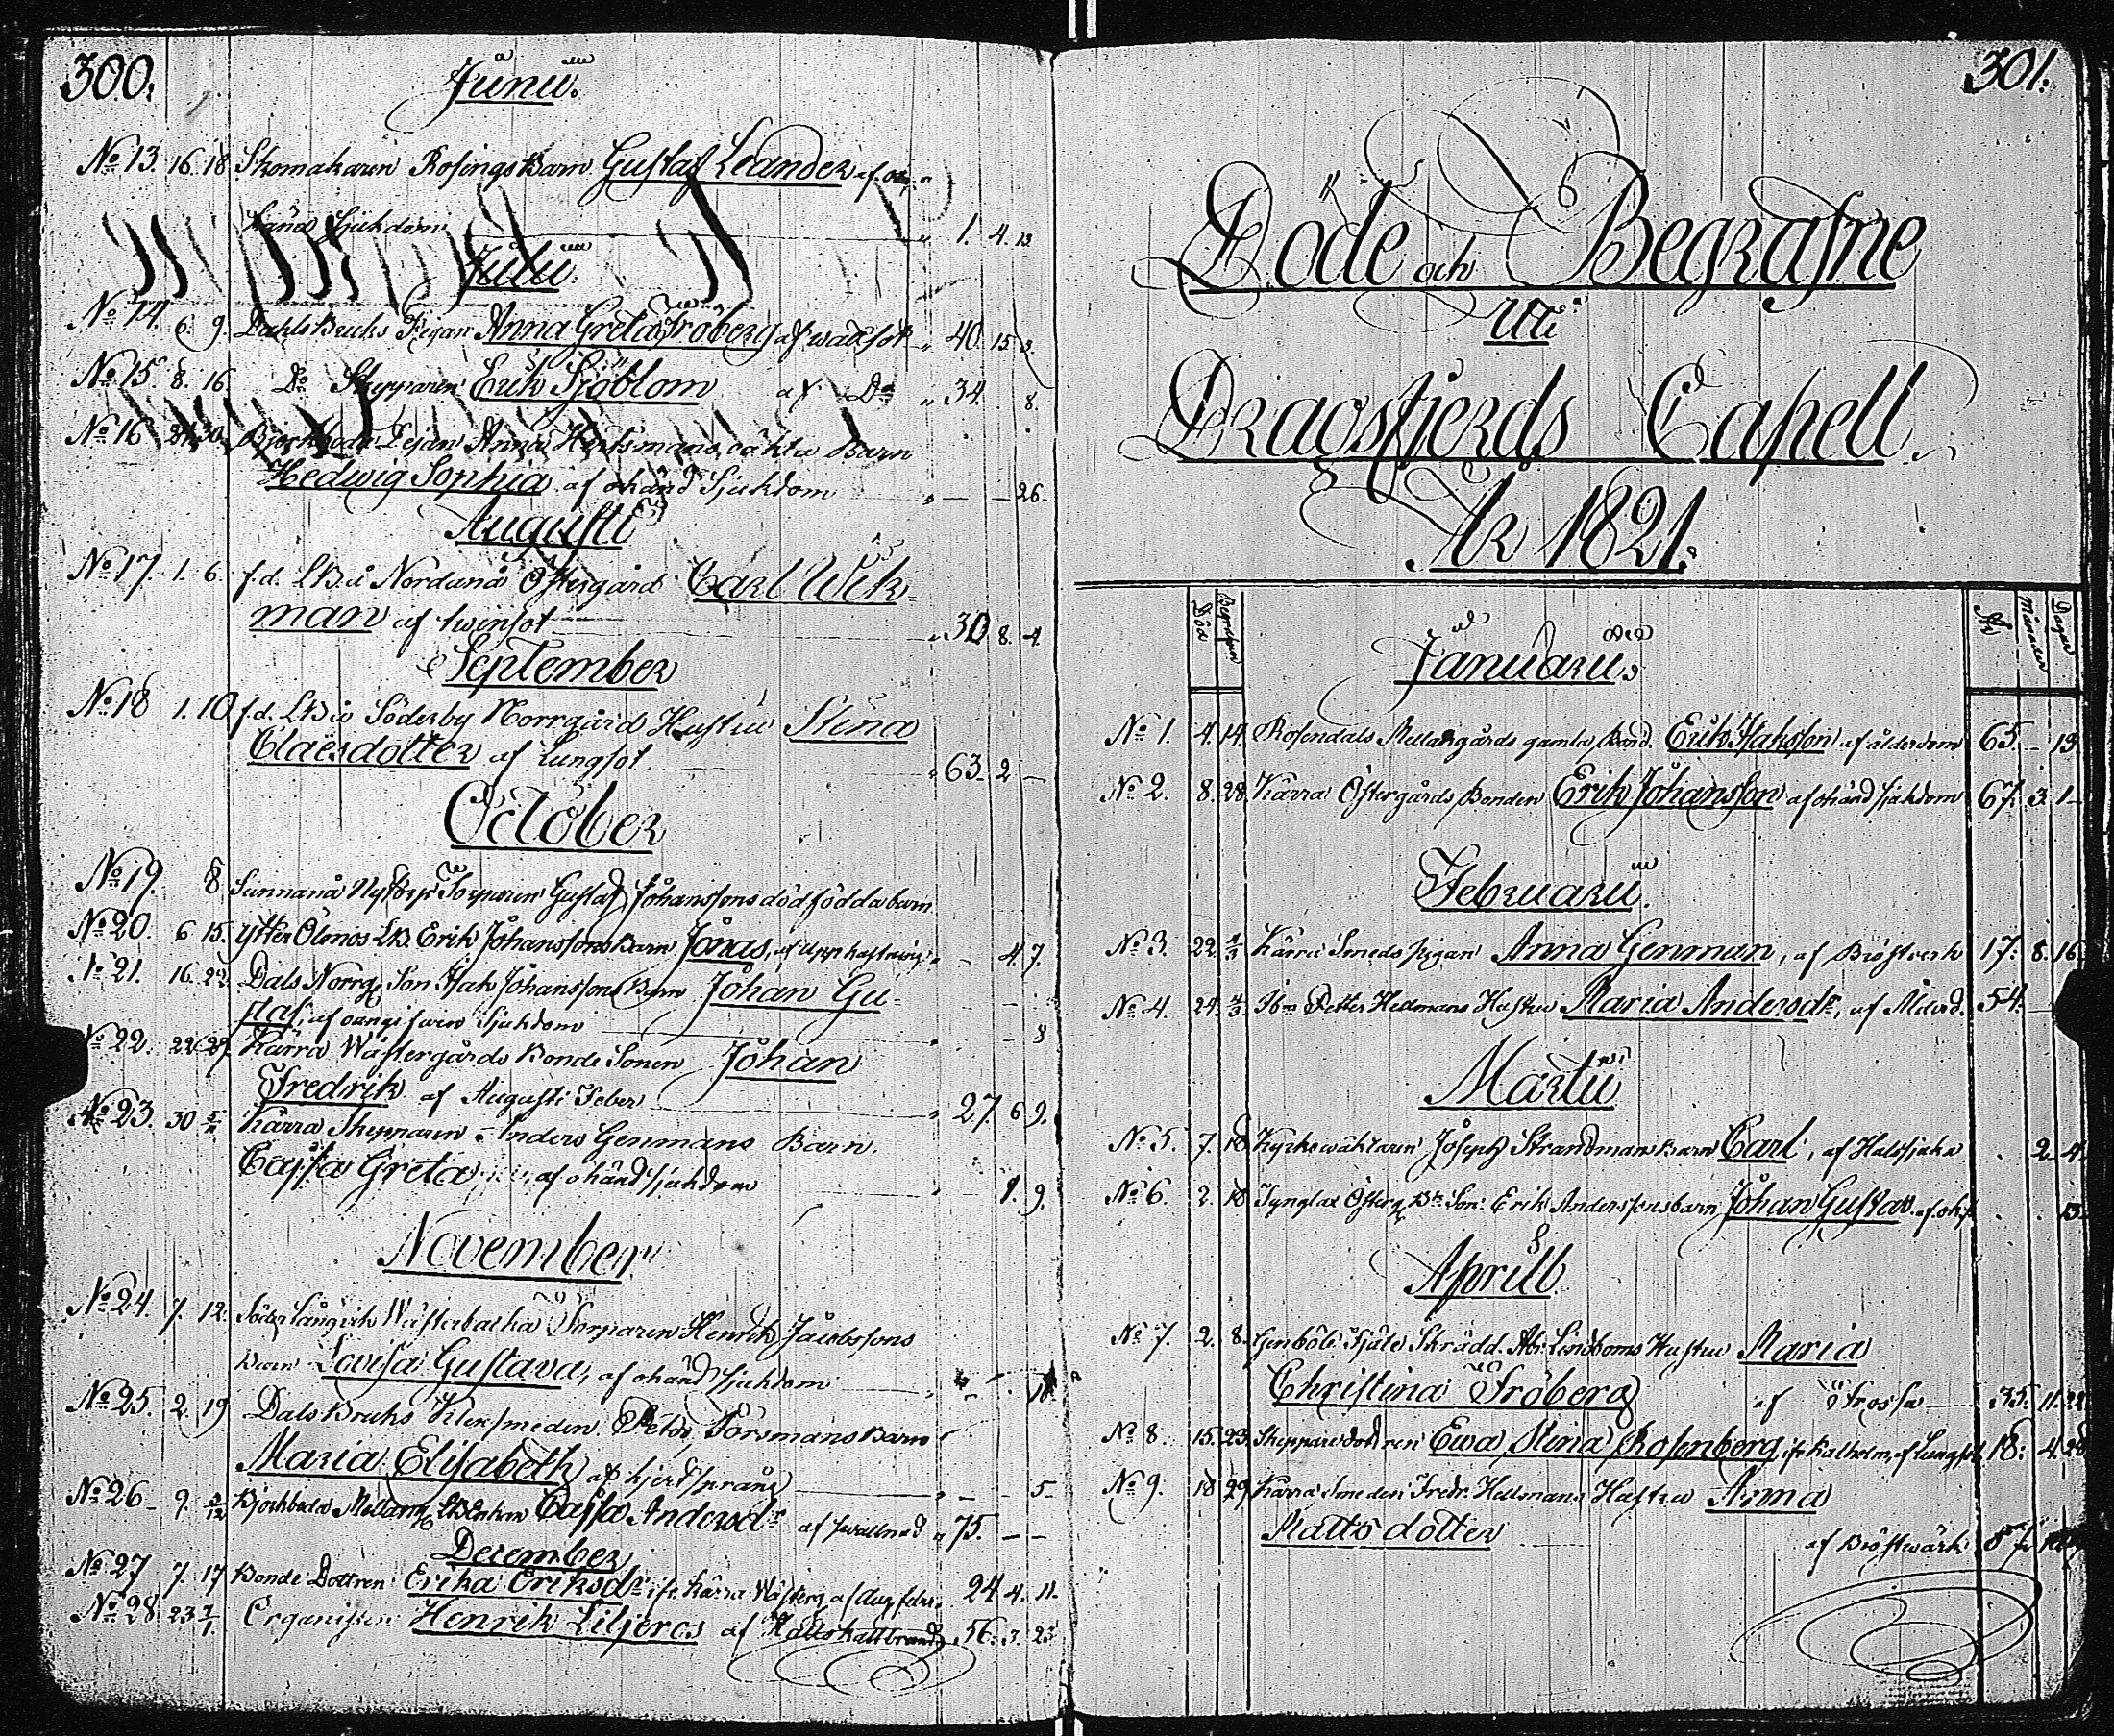 300.
Junii
No 13. 16. 18 Skomakaren Rosings Barn Gustaf Leander af
känd Sjukdom 1. 4. 13.
Julii
No 14. 6. 9. Dahls Bruks Pigan Anna Greta Fröberg af wattsot 40. 15.
No 15. 8. 16. Do Skepparen Erik Sjöblom af Do 34. 8.
No 16 30. Björkboda Pejan Anna oäkta Barn
Hedwig Sophia af okänd Sjukdom — — 26.
Augusti
No 17. 1. 6. f.d. LB å Nordanå Östergård Carl Wik-
man af twinsot 30 8. 4.
September
No 18 1. 10 f.d. LB å Söderby Norrgård Hustru Stina
Claesdotter af Lungsot 63. 2 —
October
No 19. 8 Sunnanå Nystorps Torparen Gustaf Johanssons dödfödda barn
No 20. 6 15. Ytter Ölmos LB Erik Johanssons Barn Jonas, af — 4. 7
No 21. 16. 22. Dals Norrg. Son Isak Johanssons Barn Johan Gu-
staf, af oangifwen Sjukdom — 8
No 22. 22 29. Kärra Wästergårds Bonde Sonen Johan
Fredrik af Augusti Feber 27. 6 9.
No 23. 30 Kärra Skepparen Anders Genmans Barn
Cajsa Greta af okänd sjukdom 1. 9.
November
No 24. 7. 12. Söder Långvik Wästerbacka Torparen Henrik Jacobssons
Barn Lovisa Gustava, af okänd sjukdom
No 25. 2. 19 Dals Bruks Klensmeden Petter Forsmans Barn
Maria Elisabeth af hjertsprång — — 5
No 26 — 9. Björkboda Mellang. Enkan Cajsa Andersdr af 75. — —
December
No 27 7. 17 Bonde Dottren Erika Eriksdr ifr. Kärra Wästerg. af Aug. feber 24 4. 11.
No 28. 23 Organisten Henrik Liljeros af Hållekallbrand 56. 3. 23
301.
Döde och Begrafne
uti
Dragsfjerds Capell
År 1821.
Död Begrafven År Månader Dagar
Januarii
No 1. 4. 14. Rosendals Mellangårds gamla Bond. Erik Isaksson af ålderdom 65. — 13
No 2. 8. 28 Kärra Östergårds Bonden Erik Johansson af okänd sjukdom 67. 3. 1
Februarii
No 3. 22. 4/3 Kärra Smeds pigan Anna Genman, af Bröstverk 17. 8. 16
No 4. 24. 4/3 Petter Hellmans Hustru Maria Andersdr, af 54.
Martii
No 5. 7. 18 Kyrkowäktaren Joseph Strandmans Barn Carl, af Halssjuka . 2. 4.
No 6. 2. 18 Tynglax Österg. Bs Son Erik Anderssons barn Johan Gustav af . . 13.
Aprill
No 7. 2. 8. Genböle Skrädd. Abr. Lindboms Hustru Maria
Christina Fröberg af Trossa 35. 11. 22
No 8. 15. 23. Skeppare dottren Ewa Stina Rosenberg ifr. Kalholm, af Lungsot 18. 4. 28
No 9. 18 29. Kärra Smeden Fredr. Hellmans Hustru Anna
Mattsdotter af Bröstwärk